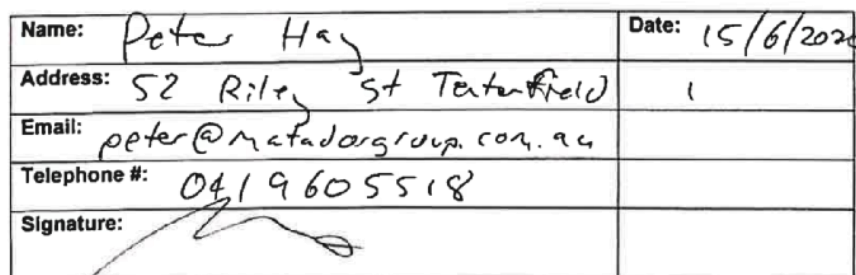 Name: Peter Hay Date: 15/6/202
Address: 52 Riley St Tenterfield
Email: peter@matadorgroup.com.au
Telephone #: 0419605518
Signature: